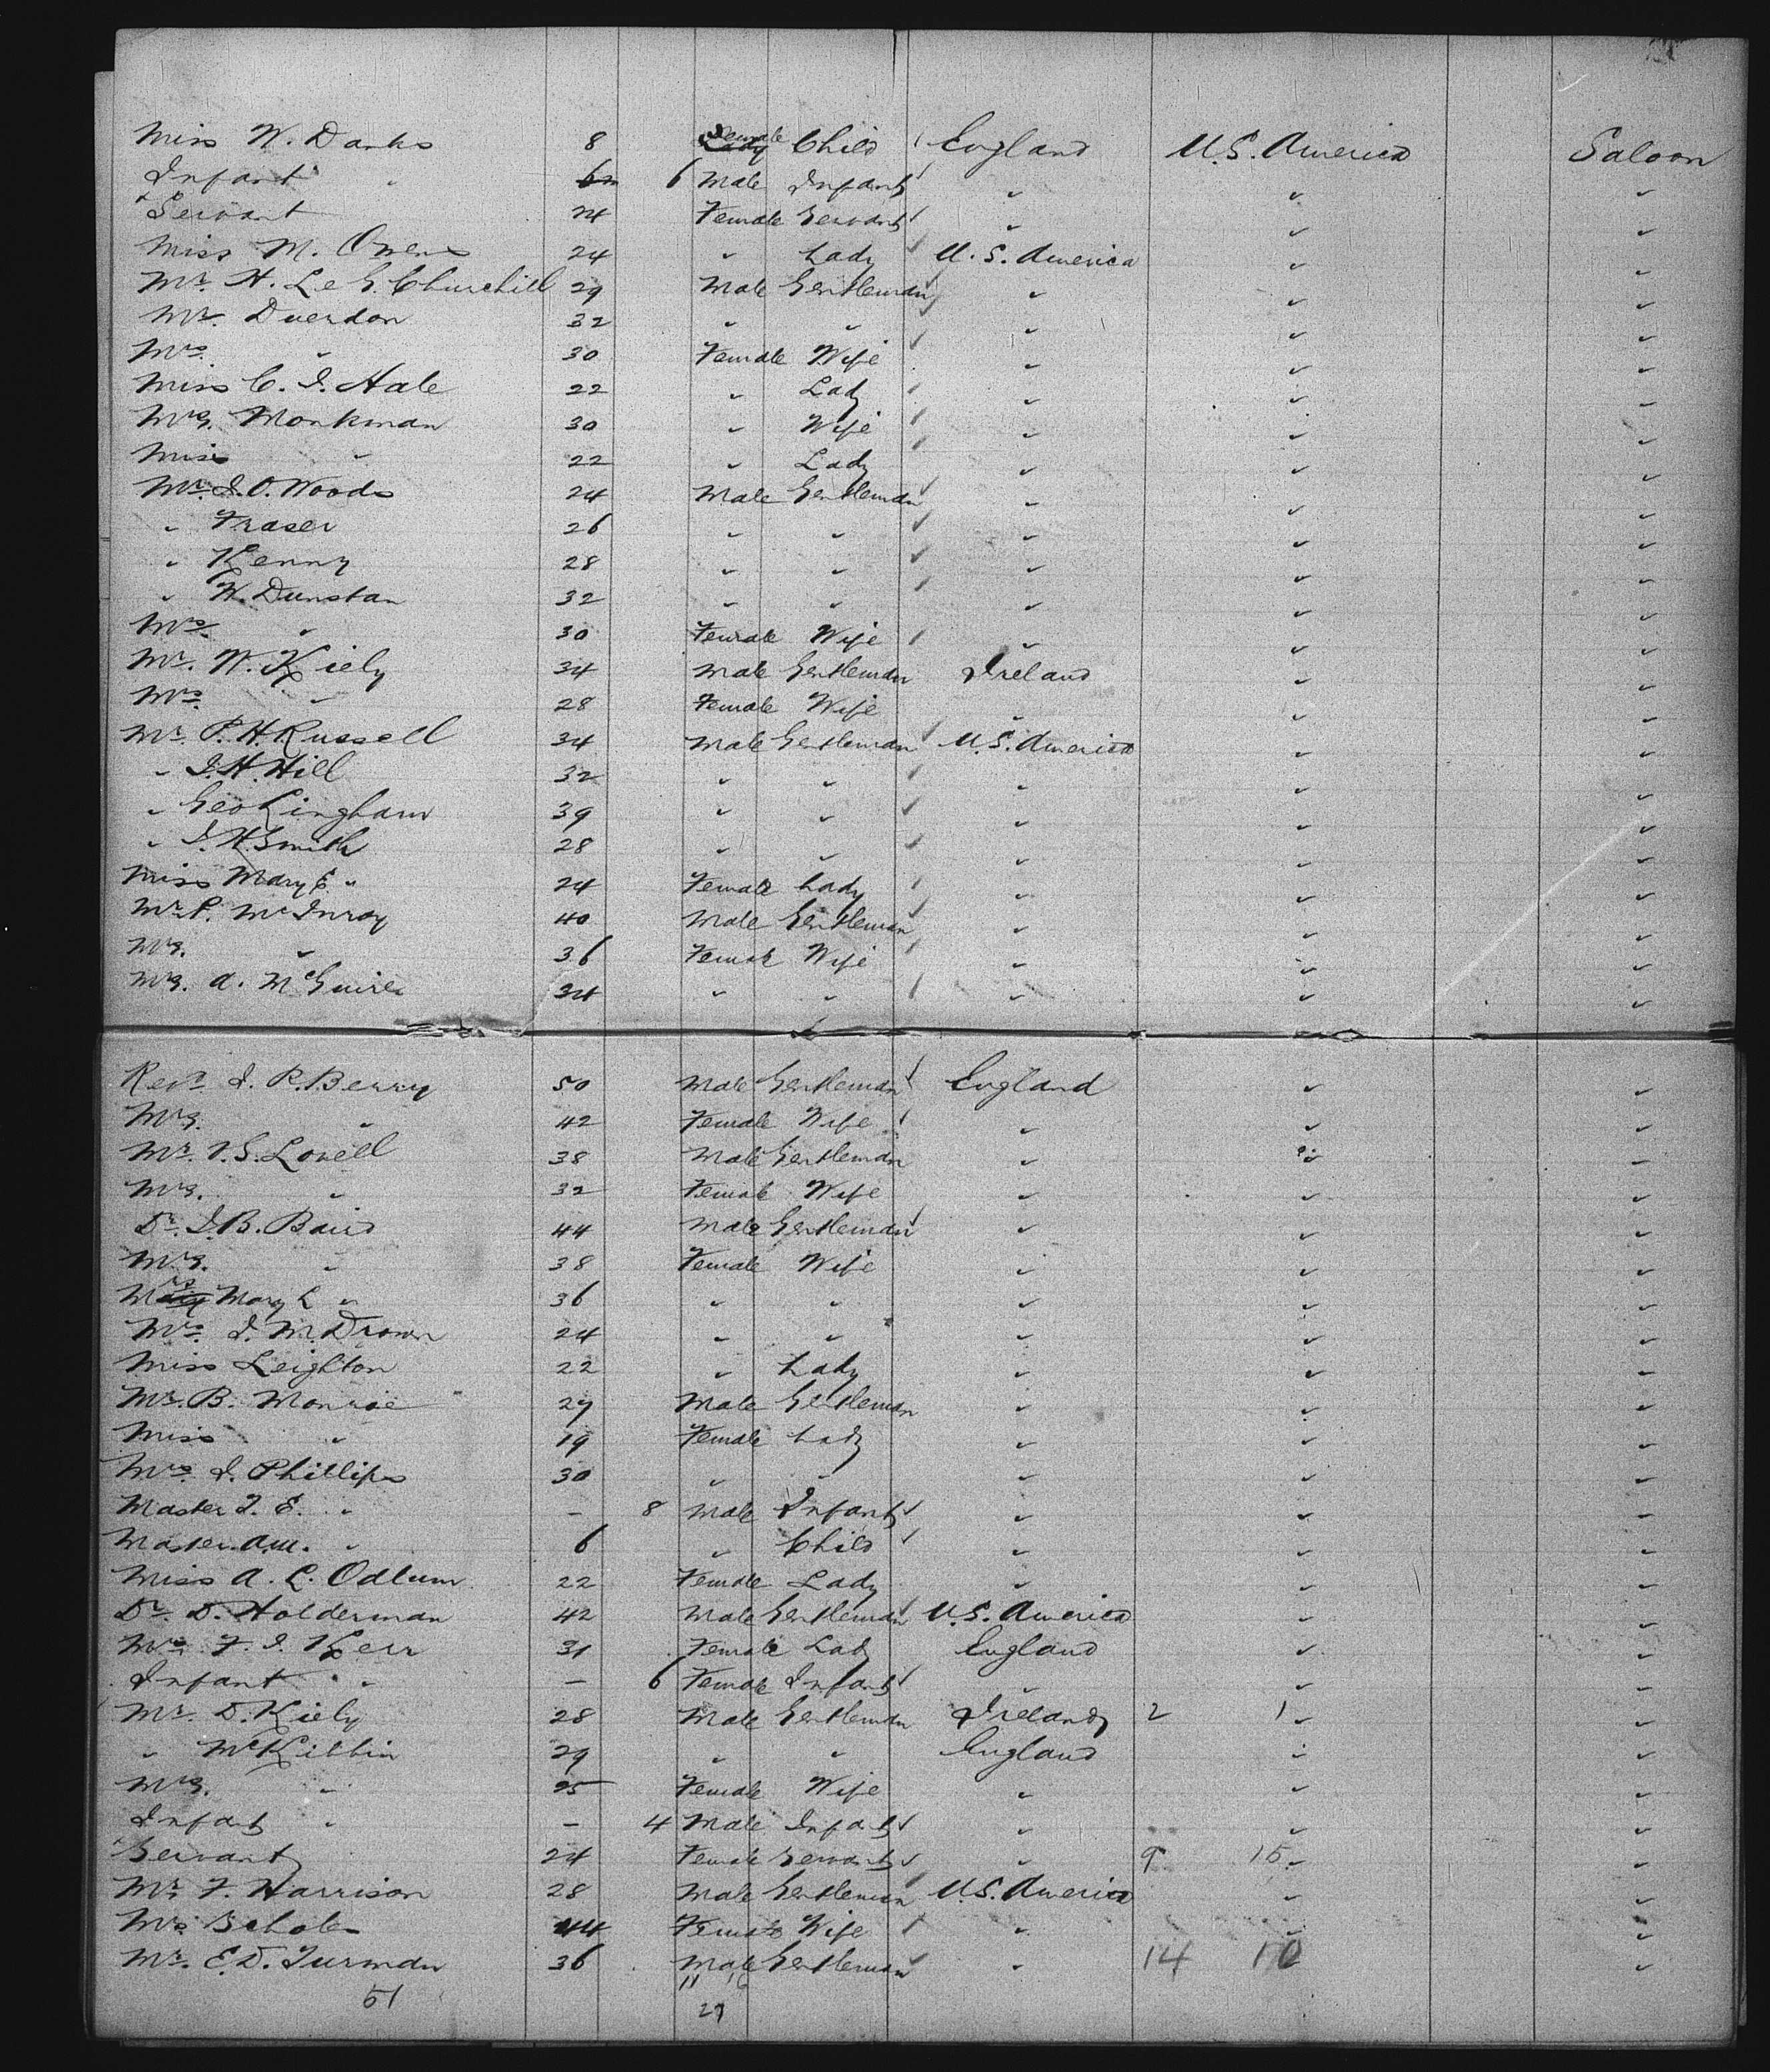 Miss W. Danks 8 Female Child England U.S. America Saloon
Infant " 6 Male Infant " " "
& Servant 24 Female Servant " " "
Miss M. Owens 24 " Lady U.S. America " "
Mr. H. Le G. Churchill 29 Male Gentleman " " "
Mr. Duerdon 32 " " " " "
Mrs. " 30 Female Wife " " "
Miss C. I. Hale 22 " Lady " " "
Mrs. Monkman 30 " Wife " " "
Miss " 22 " Lady " " "
Mr. J. O. Woods 24 Male Gentleman " " "
" Fraser 26 " " " " "
" Kenny 28 " " " " "
" W. Dunstan 32 " " " " "
Mrs. " 30 Female Wife " " "
Mr. W. Kiely 34 Male Gentleman Ireland " "
Mrs. " 28 Female Wife " " "
Mr. P. H. Russell 34 Male Gentleman U.S. America " "
" J. H. Hill 32 " " " " "
" Geo Lingham 39 " " " " "
" J. H. Smith 28 " " " " "
Miss Mary E. " 24 Female Lady " " "
Mr. P. McInroy 40 Male Gentleman " " "
Mrs. " 36 Female Wife " " "
Mrs. A. McGuire 34 " " " " "
Revd. J. R. Berry 50 Male Gentleman England " "
Mrs. " 42 Female Wife " " "
Mr. V. S. Lovell 38 Male Gentleman " " "
Mrs. " 32 Female Wife " " "
Dr. J. B. Baird 44 Male Gentleman " " "
Mrs. " 38 Female Wife " " "
Mrs Mary L " 36 " " " " "
Mrs. J. M. Drown 24 " " " " "
Miss Leighton 22 " Lady " " "
Mr. B. Monroe 27 Male Gentleman " " "
Miss " 19 Female Lady " " "
Mrs. J. Phillips 30 " " " " "
Master J. E. " – 8 Male Infant " " "
Master A.M. " 6 " Child " " "
Miss A. L. Odlum 22 Female Lady " " "
Dr. D. Holderman 42 Male Gentleman U.S. America " "
Mrs. F. J. Kerr 31 Female Lady England " "
Infant " – 6 Female Infant " " "
Mr. D. Kiely 28 Male Gentleman Ireland 2 1 " "
" McKibbin 29 " " England " "
Mrs. " 25 Female Wife " " "
Infant " – 4 Male Infant " " "
& Servant 24 Female Servant " 9 15 " "
Mr. F. Harrison 28 Male Gentleman U.S. America " "
Mrs Scholes 44 Female Wife " " "
Mr. E. D. Turman 36 Male Gentleman " 14 10 "
51 11 16
27